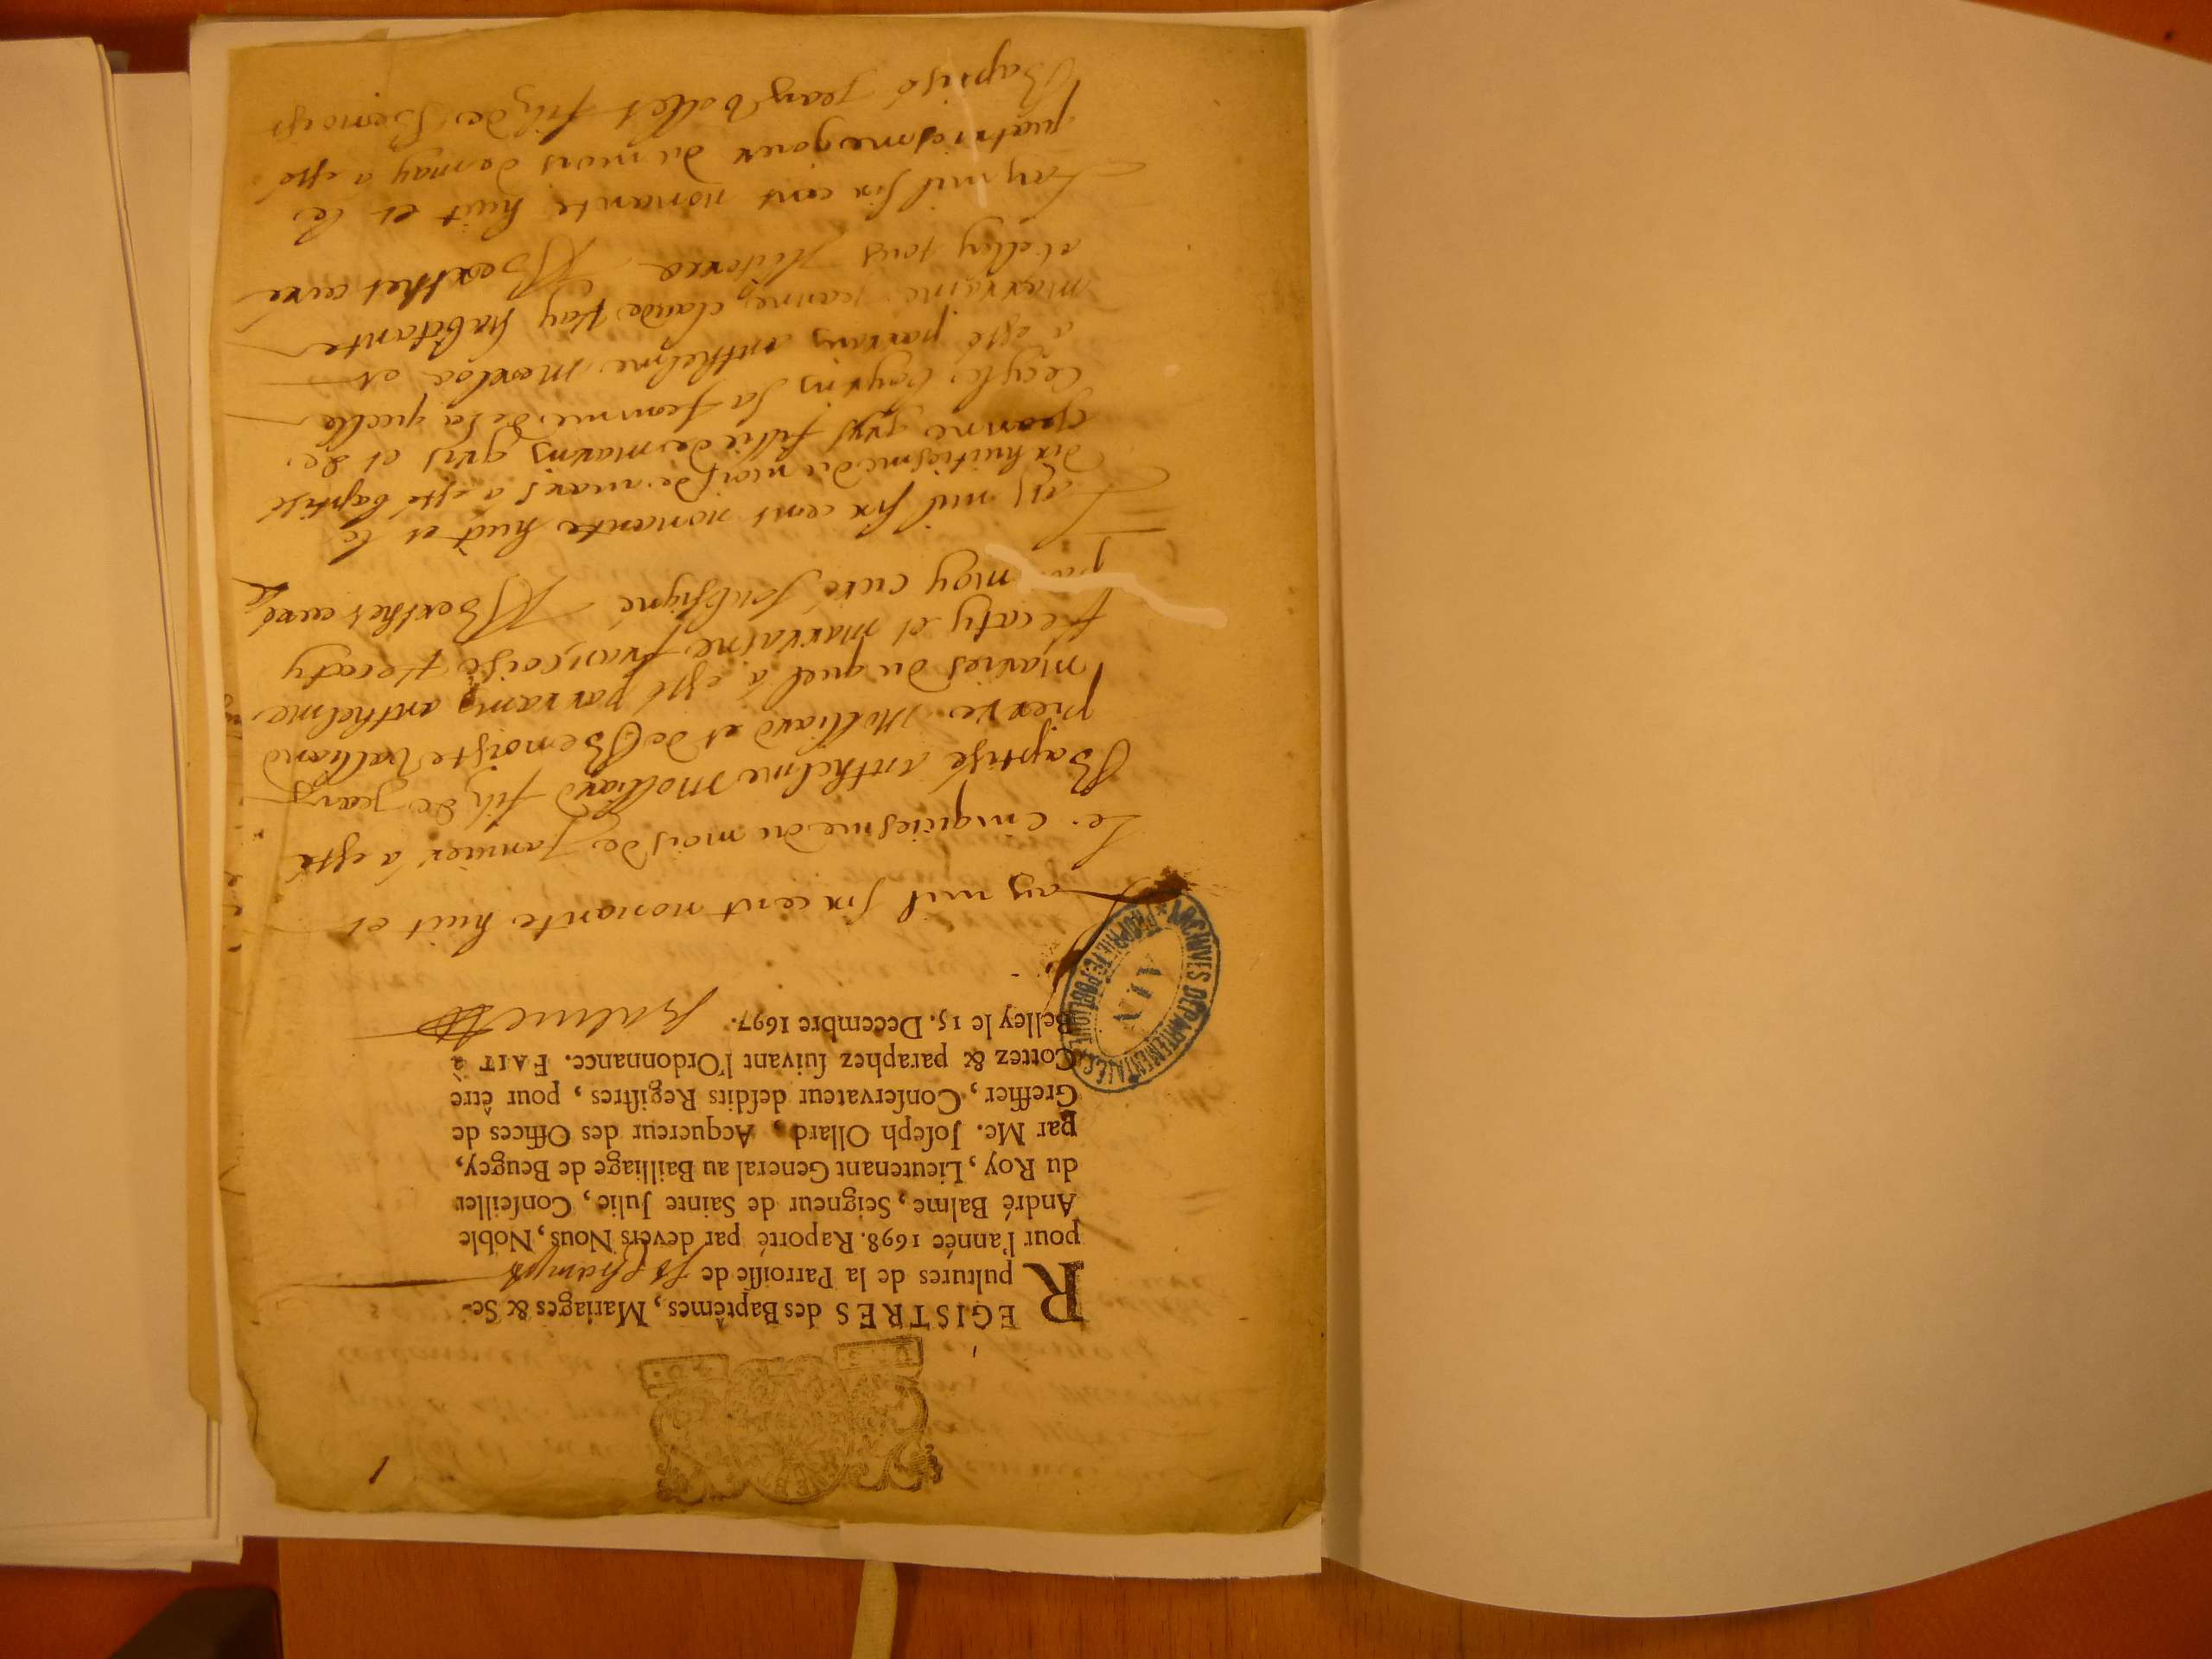 1
REGISTRES des Baptêmes, Mariages & Se-
pultures de la Parroisse de St Champt
pour l'année 1698. Raporté par devers Nous, Noble
André Balme, Seigneur de Sainte Julie, Conseiller
du Roy, Lieutenant General au Bailliage de Beugey,
par Me. Joseph Ollard, Acquereur des Offices de
Greffier, Conservateur desdits Registres, pour être
Cottez & paraphez suivant l'Ordonnance. FAIT à
Belley le 15. Decembre 1697. Balme
ARCHIVES DEPARTEMENTALES
AIN
PROPRIETE PUBLIQUE
Lan mil six cent nonante huit et
Le cinquiesme du mois de Janvier a esté
Baptisé anthelme Molliard fils de Jean
pierre Molliard et de Benoiste
mariés du quel a esté parrain anthelme
fecaty et marraine françoise fecaty
par moy curé soubsigné Berthet curé
Lan mil six cent nonante huit et le
dix huitiesme du mois de mars a esté baptisé
Jeanne gros fillie de marin gros et de
Cecyle sa femme de la quelle
a esté parrain anthelme et
marraine jeanne claude fay habitante
tous Berthet curé
Lan mil six cent nonante huit et le
quatriesme jour du mois de may a esté
Baptisé jean Collet fils de Benoist